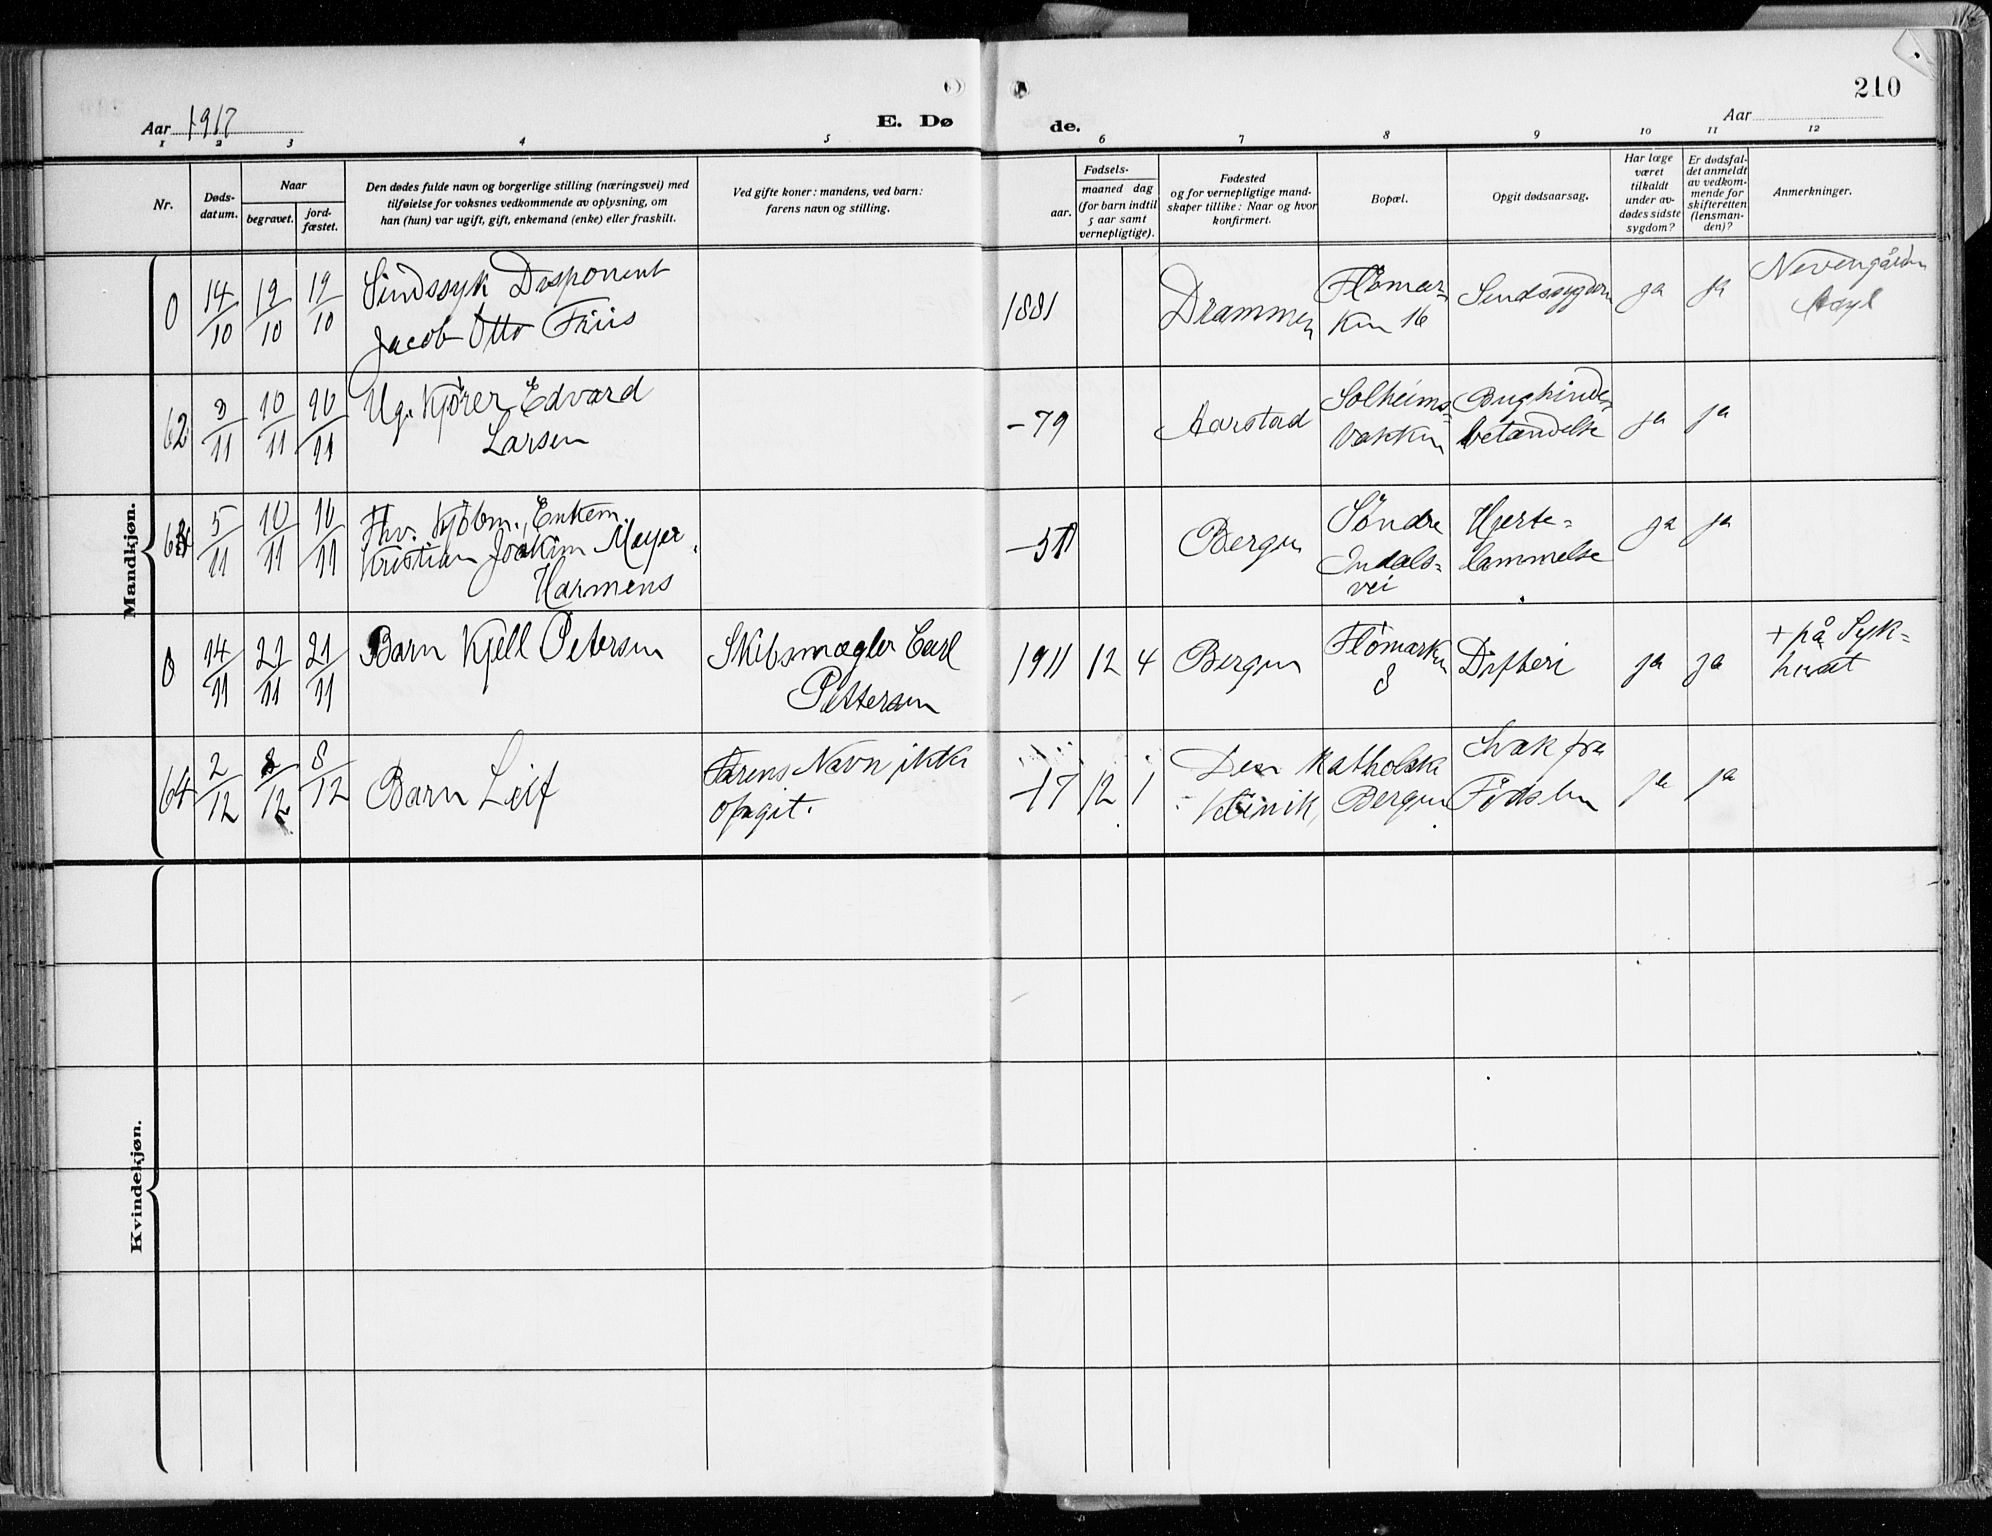 210
Aar 1917
E. Dø
de.
Aar
1 2 3 4 5 6 7 8 9 10 11 12
Nr.
Døds-
datum.
Naar
begravet.
jord-
fæstet.
Den dødes fulde navn og borgerlige stilling (næringsvei) med
tilføielse for voksnes vedkommende av oplysning, om
han (hun) var ugift, gift, enkemand (enke) eller fraskilt.
Ved gifte koner: mandens, ved barn:
farens navn og stilling.
Fødsels-
aar.
maaned dag
(for barn indtil
5 aar samt
vernepligtige).
Fødested
og for vernepligtige mand-
skaper tillike: Naar og hvor
konfirmert.
Bopæl.
Opgit dødsaarsag.
Har læge
været
tilkaldt
under av-
dødes sidste
sygdom?
Er dødsfal-
det anmeldt
av vedkom-
mende for
skifteretten
(lensman-
den)?
Anmerkninger.
Mandkjøn.
0 14/10 19/10 19/10
Sindssyk Disponent
Jacob Otto Friis
1881
Drammen
Flömar-
ken 16
Sindssygdom
ja ja
Nevengården
Asyl
62 3/11 10/11 10/11
Ug. Kjörer Edvard
Larsen
-79
Aarstad
Solheims-
vakken
Bughinde-
betændelse
ja ja
63 5/11 10/11 10/11
Fhv. Kjöbm., Enkem.
Kristian Joakim Meyer
Harmens
Bergen
Söndre
Indals-
vei
Hjerte-
lammelse
ja ja
0 14/11 21/11 21/11
Barn Kjell Petersen
Skibsmægler Carl
Pettersen
1911 12 4
Bergen
Flömarken
8
Difteri
ja ja
+ på Syk-
huset
64 2/12 8/12 8/12
Barn Leif
Farens Navn ikke
opgit.
-17 12 1
Den katholske
Klinik, Bergen
Svak fra
Födslen
ja ja
Kvindekjøn.